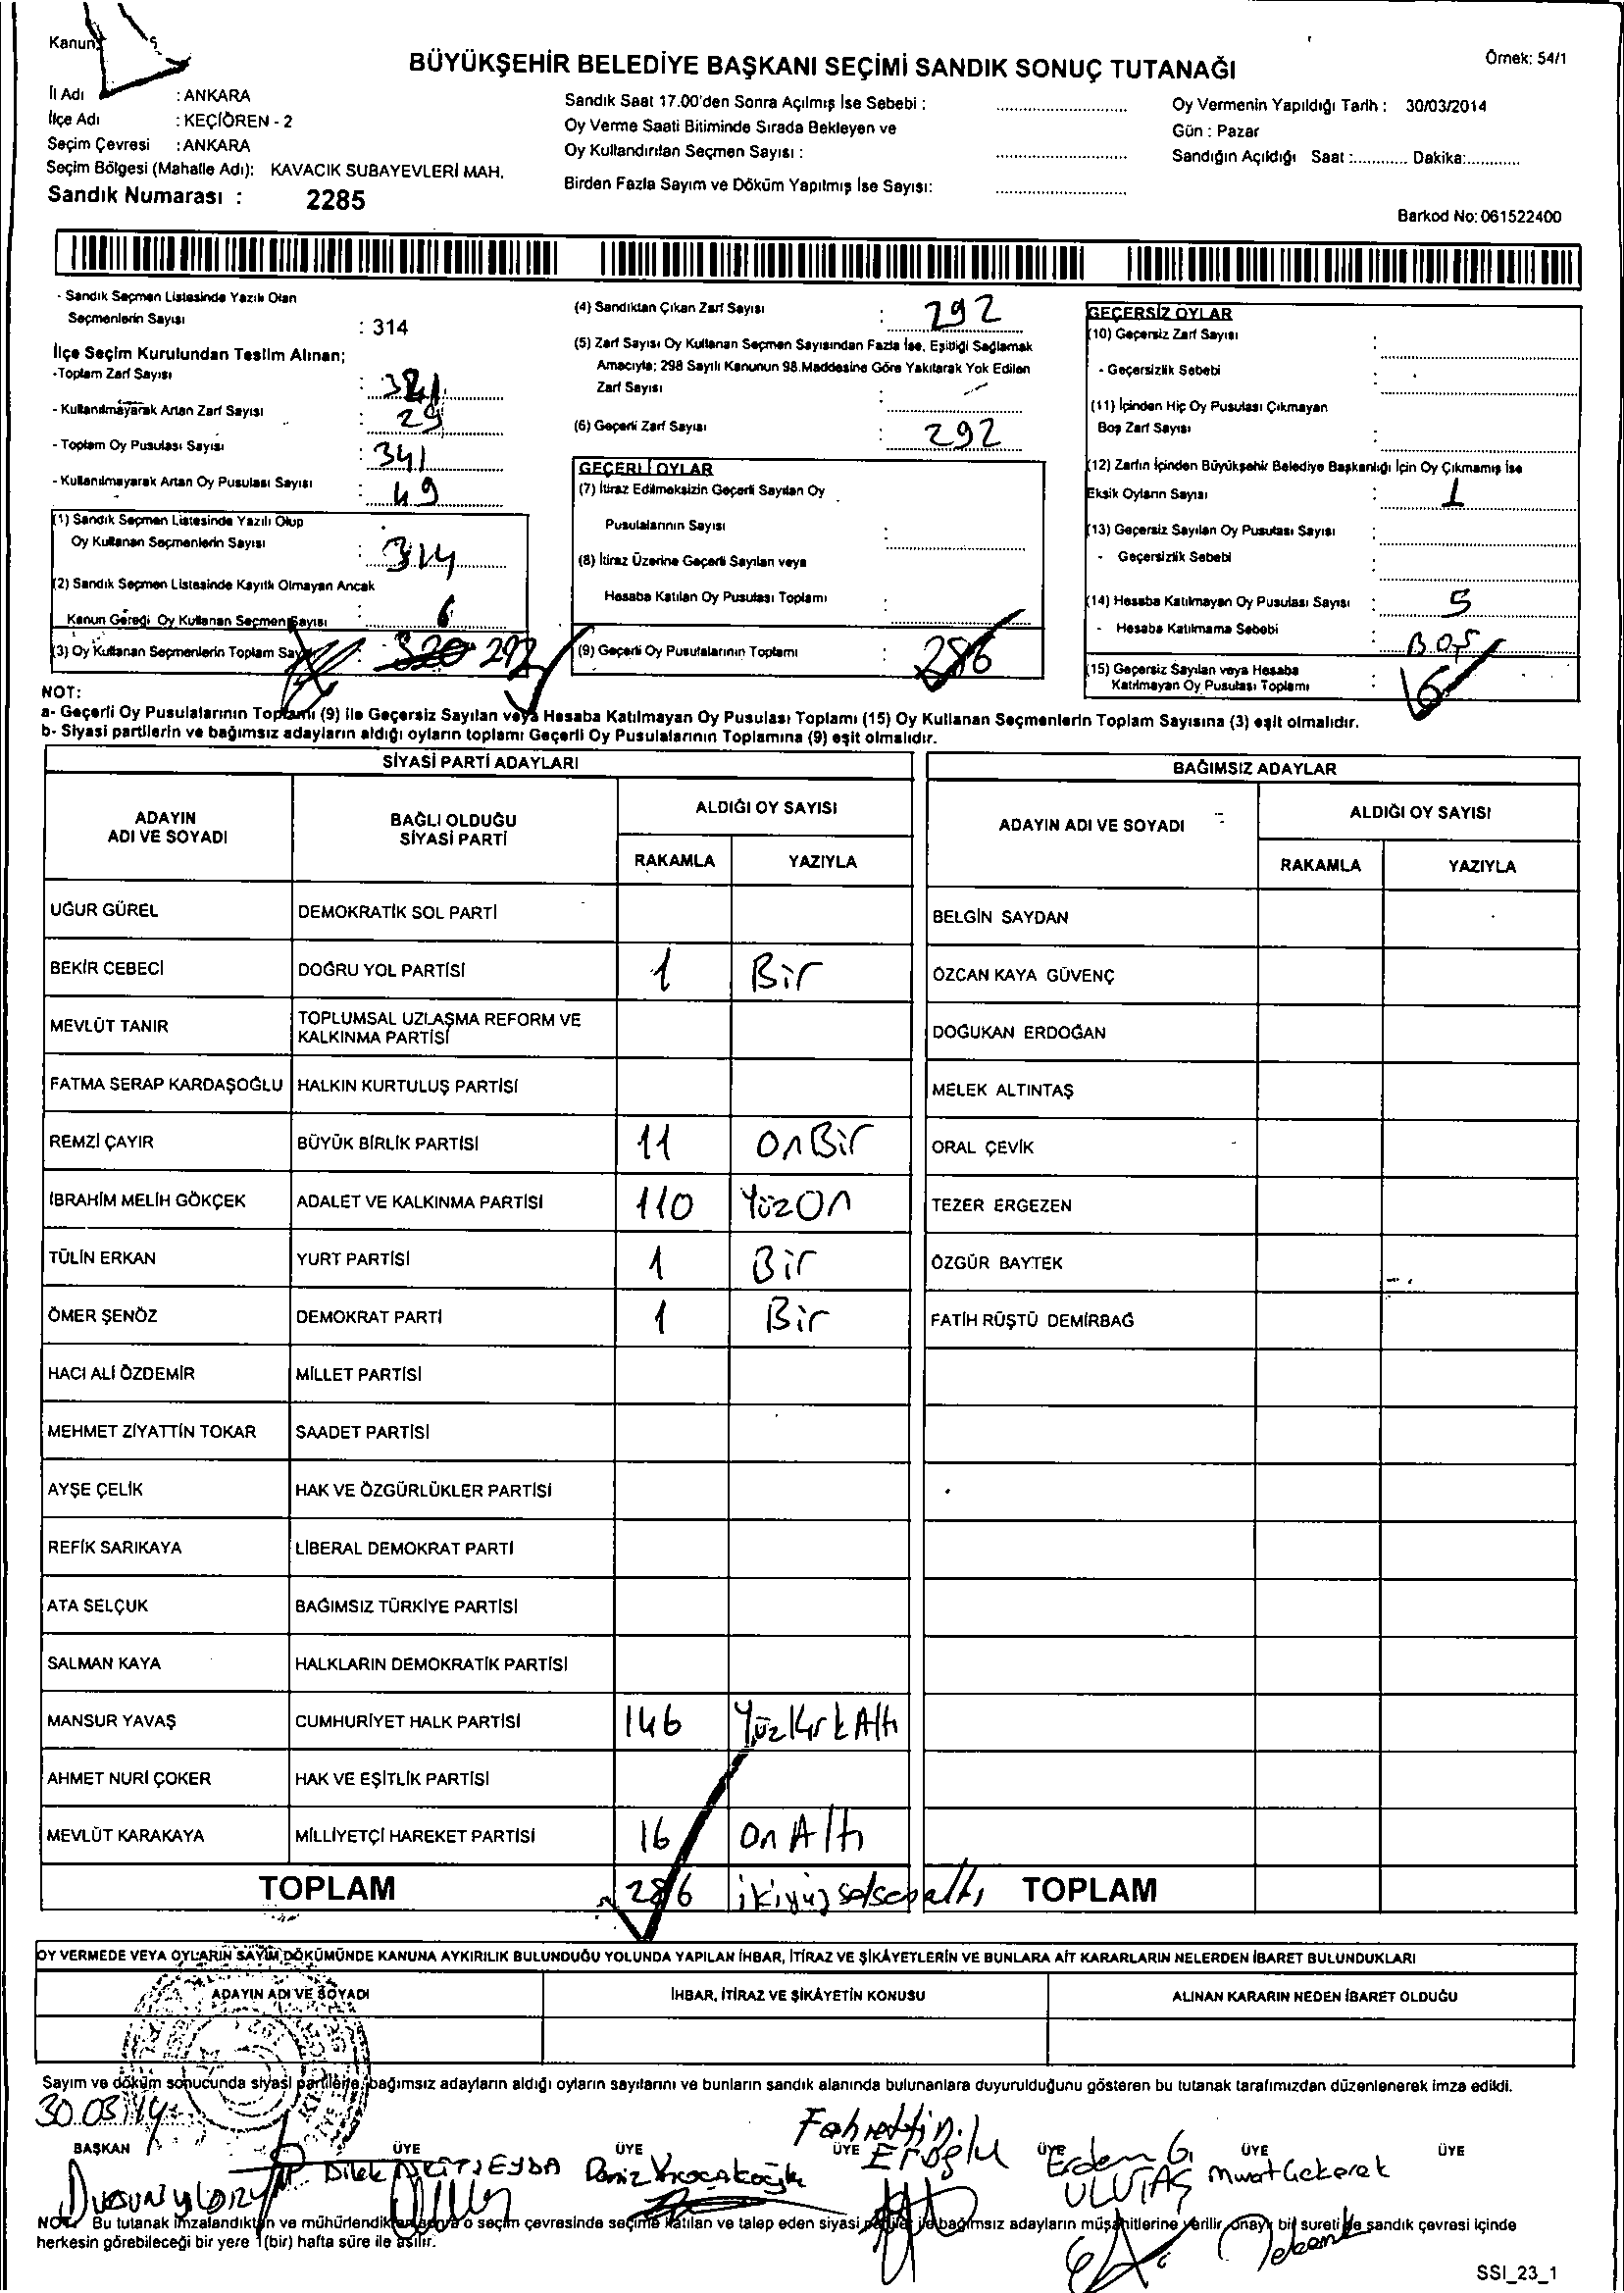 Kanun
BÜYÜKŞEHİR BELEDİYE BAŞKANI SEÇİMİ SANDIK SONUÇ TUTANAĞI
Örnek: 54/1
İl Adı : ANKARA
İlçe Adı : KEÇİÖREN - 2
Seçim Çevresi : ANKARA
Seçim Bölgesi (Mahalle Adı): KAVACIK SUBAYEVLERİ MAH.
Sandık Numarası : 2285
Sandık Saat 17.00'den Sonra Açılmış İse Sebebi :
Oy Verme Saati Bitiminde Sırada Bekleyen ve
Oy Kullandırılan Seçmen Sayısı :
Birden Fazla Sayım ve Döküm Yapılmış İse Sayısı:
Oy Vermenin Yapıldığı Tarih : 30/03/2014
Gün : Pazar
Sandığın Açıldığı Saat :............ Dakika:............
Barkod No: 061522400
- Sandık Seçmen Listesinde Yazılı Olan
Seçmenlerin Sayısı : 314
İlçe Seçim Kurulundan Teslim Alınan;
-Toplam Zarf Sayısı :
- Kullanılmayarak Artan Zarf Sayısı : 29
- Toplam Oy Pusulası Sayısı : 341
- Kullanılmayarak Artan Oy Pusulası Sayısı : 49
(1) Sandık Seçmen Listesinde Yazılı Olup
Oy Kullanan Seçmenlerin Sayısı : 314
(2) Sandık Seçmen Listesinde Kayıtlı Olmayan Ancak
Kanun Gereği Oy Kullanan Seçmen Sayısı : 6
(3) Oy Kullanan Seçmenlerin Toplam Say : 320 292
(4) Sandıktan Çıkan Zarf Sayısı : 292
(5) Zarf Sayısı Oy Kullanan Seçmen Sayısından Fazla İse, Eşitliği Sağlamak
Amacıyla; 298 Sayılı Kanunun 98.Maddesine Göre Yakılarak Yok Edilen
Zarf Sayısı : -
(6) Geçerli Zarf Sayısı : 292
GEÇERLİ OYLAR
(7) İtiraz Edilmeksizin Geçerli Sayılan Oy
Pusulalarının Sayısı :
(8) İtiraz Üzerine Geçerli Sayılan veya
Hesaba Katılan Oy Pusulası Toplamı :
(9) Geçerli Oy Pusulalarının Toplamı : 286
GEÇERSİZ OYLAR
(10) Geçersiz Zarf Sayısı :
- Geçersizlik Sebebi :
(11) İçinden Hiç Oy Pusulası Çıkmayan
Boş Zarf Sayısı :
(12) Zarfın İçinden Büyükşehir Belediye Başkanlığı İçin Oy Çıkmamış İse
Eksik Oyların Sayısı : 1
(13) Geçersiz Sayılan Oy Pusulası Sayısı :
- Geçersizlik Sebebi :
(14) Hesaba Katılmayan Oy Pusulası Sayısı : 5
- Hesaba Katılmama Sebebi : BOŞ
(15) Geçersiz Sayılan veya Hesaba
Katılmayan Oy Pusulası Toplamı : 6
NOT:
a- Geçerli Oy Pusulalarının Toplamı (9) ile Geçersiz Sayılan veya Hesaba Katılmayan Oy Pusulası Toplamı (15) Oy Kullanan Seçmenlerin Toplam Sayısına (3) eşit olmalıdır.
b- Siyasi partilerin ve bağımsız adayların aldığı oyların toplamı Geçerli Oy Pusulalarının Toplamına (9) eşit olmalıdır.
SİYASİ PARTİ ADAYLARI
ADAYIN ADI VE SOYADI
BAĞLI OLDUĞU SİYASİ PARTİ
ALDIĞI OY SAYISI
RAKAMLA YAZIYLA
UĞUR GÜREL DEMOKRATİK SOL PARTİ
BEKİR CEBECİ DOĞRU YOL PARTİSİ 1 Bir
MEVLÜT TANIR TOPLUMSAL UZLAŞMA REFORM VE KALKINMA PARTİSİ
FATMA SERAP KARDAŞOĞLU HALKIN KURTULUŞ PARTİSİ
REMZİ ÇAYIR BÜYÜK BİRLİK PARTİSİ 11 OnBir
İBRAHİM MELİH GÖKÇEK ADALET VE KALKINMA PARTİSİ 110 YüzOn
TÜLİN ERKAN YURT PARTİSİ 1 Bir
ÖMER ŞENÖZ DEMOKRAT PARTİ 1 Bir
HACI ALİ ÖZDEMİR MİLLET PARTİSİ
MEHMET ZİYATTİN TOKAR SAADET PARTİSİ
AYŞE ÇELİK HAK VE ÖZGÜRLÜKLER PARTİSİ
REFİK SARIKAYA LİBERAL DEMOKRAT PARTİ
ATA SELÇUK BAĞIMSIZ TÜRKİYE PARTİSİ
SALMAN KAYA HALKLARIN DEMOKRATİK PARTİSİ
MANSUR YAVAŞ CUMHURİYET HALK PARTİSİ 146 YüzKırkAltı
AHMET NURİ ÇOKER HAK VE EŞİTLİK PARTİSİ
MEVLÜT KARAKAYA MİLLİYETÇİ HAREKET PARTİSİ 16 OnAltı
TOPLAM 286 ikiyüzseksenaltı
BAĞIMSIZ ADAYLAR
ADAYIN ADI VE SOYADI
ALDIĞI OY SAYISI
RAKAMLA YAZIYLA
BELGİN SAYDAN
ÖZCAN KAYA GÜVENÇ
DOĞUKAN ERDOĞAN
MELEK ALTINTAŞ
ORAL ÇEVİK
TEZER ERGEZEN
ÖZGÜR BAYTEK
FATİH RÜŞTÜ DEMİRBAĞ
TOPLAM
OY VERMEDE VEYA OYLARIN SAYIM DÖKÜMÜNDE KANUNA AYKIRILIK BULUNDUĞU YOLUNDA YAPILAN İHBAR, İTİRAZ VE ŞİKÂYETLERİN VE BUNLARA AİT KARARLARIN NELERDEN İBARET BULUNDUKLARI
ADAYIN ADI VE SOYADI İHBAR, İTİRAZ VE ŞİKÂYETİN KONUSU ALINAN KARARIN NEDEN İBARET OLDUĞU
Sayım ve döküm sonucunda siyasi partilerle, bağımsız adayların aldığı oyların sayılarını ve bunların sandık alanında bulunanlara duyurulduğunu gösteren bu tutanak tarafımızdan düzenlenerek imza edildi.
30.03.14
BAŞKAN ÜYE ÜYE ÜYE ÜYE ÜYE ÜYE
Dursun Dilek Deniz Fahrettin Eroğlu Erdem G. ULUTAŞ Murat
NOT: Bu tutanak imzalandıktan ve mühürlendikten sonra o seçim çevresinde seçime katılan ve talep eden siyasi partiler ve bağımsız adayların müşahitlerine verilir, onaylı bir sureti de sandık çevresi içinde
herkesin görebileceği bir yere 1(bir) hafta süre ile asılır.
SSI_23_1